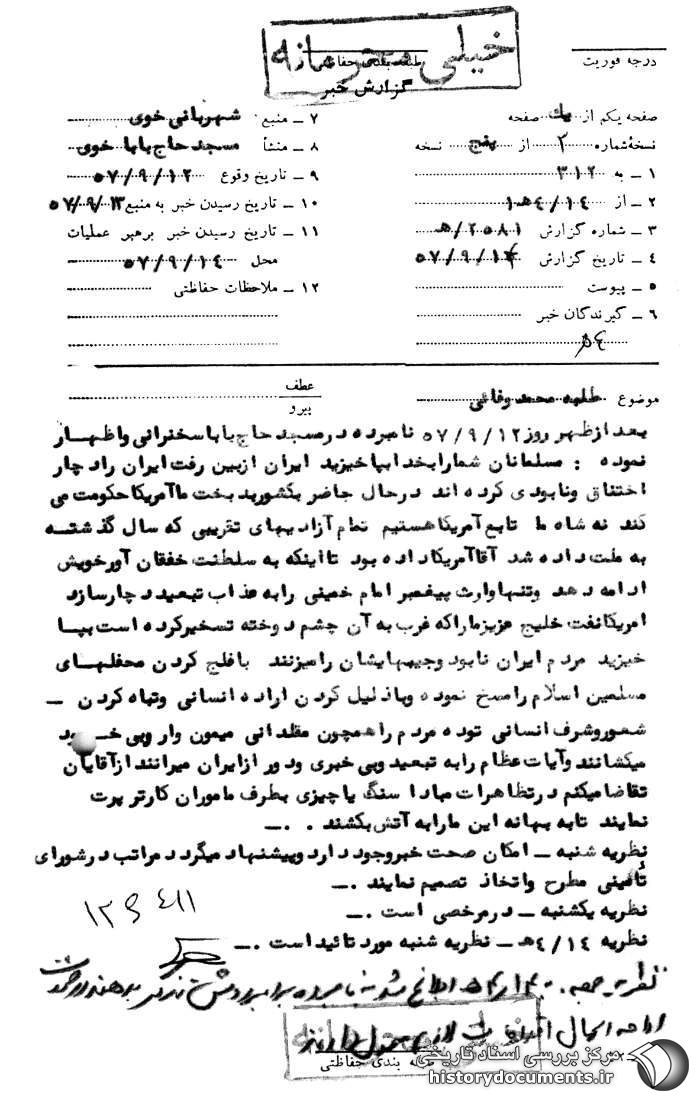 خیلی محرمانه
طبقه بندی حفاظتی
درجه فوریت
گزارش خبر
صفحه یکم از یک صفحه
نسخهٔ شماره ۲ از پنج نسخه
۱ ـ به ۳۱۲
۲ ـ از ۱۴/۴/ه۱
۳ ـ شماره گزارش ۲۵۸۱/ه
۴ ـ تاریخ گزارش ۵۷/۹/۱۴
۵ ـ پیوست
۶ ـ گیرندگان خبر
۷ ـ منبع شهربانی خوی
۸ ـ منشأ مسجد حاج بابا خوی
۹ ـ تاریخ وقوع ۵۷/۹/۱۲
۱۰ ـ تاریخ رسیدن خبر به منبع ۵۷/۹/۱۳
۱۱ ـ تاریخ رسیدن خبر برهبر عملیات
محل ۵۷/۹/۱۴
۱۲ ـ ملاحظات حفاظتی
موضوع طلبه محمد وفائی
عطف
پیرو
بعد از ظهر روز ۵۷/۹/۱۲ نامبرده در مسجد حاج بابا سخنرانی واظهار
نموده : مسلمانان شما را بخدا بپا خیزید ایران ازبین رفت ایران را دچار
اختناق ونابودی کرده اند درحال حاضر بکشور بد بخت ما آمریکا حکومت می
کند نه شاه ما تابع آمریکا هستیم تمام آزادیهای تقریبی که سال گذشته
به ملت داده شد آقا آمریکا داده بود تا اینکه به سلطنت خفقان آور خویش
ادامه دهد وتنها وارث پیغمبر امام خمینی را به عذاب تبعید دچار سازد
امریکا نفت خلیج عزیز ما را که غرب به آن چشم دوخته تسخیر کرده است بپا
خیزید مردم ایران نابود وجیبهایشان را میزنند با فلج کردن محفلهای
مسلمین اسلام را مسخ نموده وبا ذلیل کردن اراده انسانی وتباه کردن ـ
شعور وشرف انسانی توده مردم را همچون مقلدانی میمون وار وبی خـود
میکشانند وآیات عظام را به تبعید وبی خبری ودور از ایران میرانند از آقایان
تقاضا میکنم در تظاهرات مبادا سنگ یا چیزی بطرف ماموران کارتر پرت
نمایند تا به بهانه این ما را به آتش بکشند . .ـ
نظریه شنبه ـ امکان صحت خبر وجود دارد وپیشنهاد میگردد مراتب در شورای
تأمینی مطرح واتخاذ تصمیم نمایند .ـ
نظریه یکشنبه ـ درمرخصی است .ـ
نظریه ۱۴/۴ه ـ نظریه شنبه مورد تائید است .ـ
نظریه جمعه.
خیلی محرمانه
طبقه بندی حفاظتی
مرکز بررسی اسناد تاریخی
historydocuments.ir